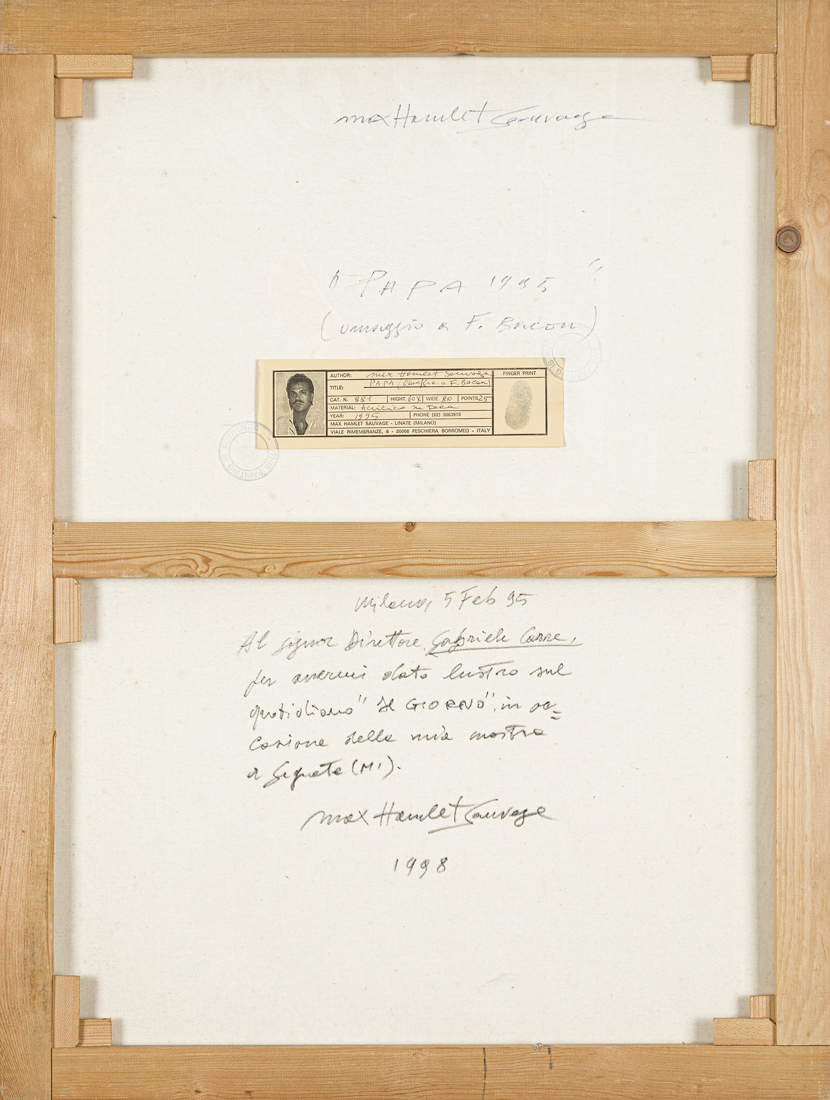 max Hamlet Sauvage
"PAPA 1995"
(omaggio a F. Bacon)
AUTHOR: max Hamlet Sauvage
TITLE: PAPA ( a F. Bacon)
CAT. N. 881 HIGHT. 60 WIDE 80 POINTS 25
MATERIAL: Acrilico su Tela
YEAR: 1995 PHONE (02) 5063915
MAX HAMLET SAUVAGE - LINATE (MILANO)
VIALE RIMEMBRANZE, 6 - 20068 PESCHIERA BORROMEO - ITALY
FINGER PRINT
Milano, 5 Feb 95
Al signor Direttore, Gabriele
per avermi dato lustro sul
quotidiano "IL GIORNO", in oc=
casione della mia mostra
a Segrate (MI).
max Hamlet Sauvage
1998